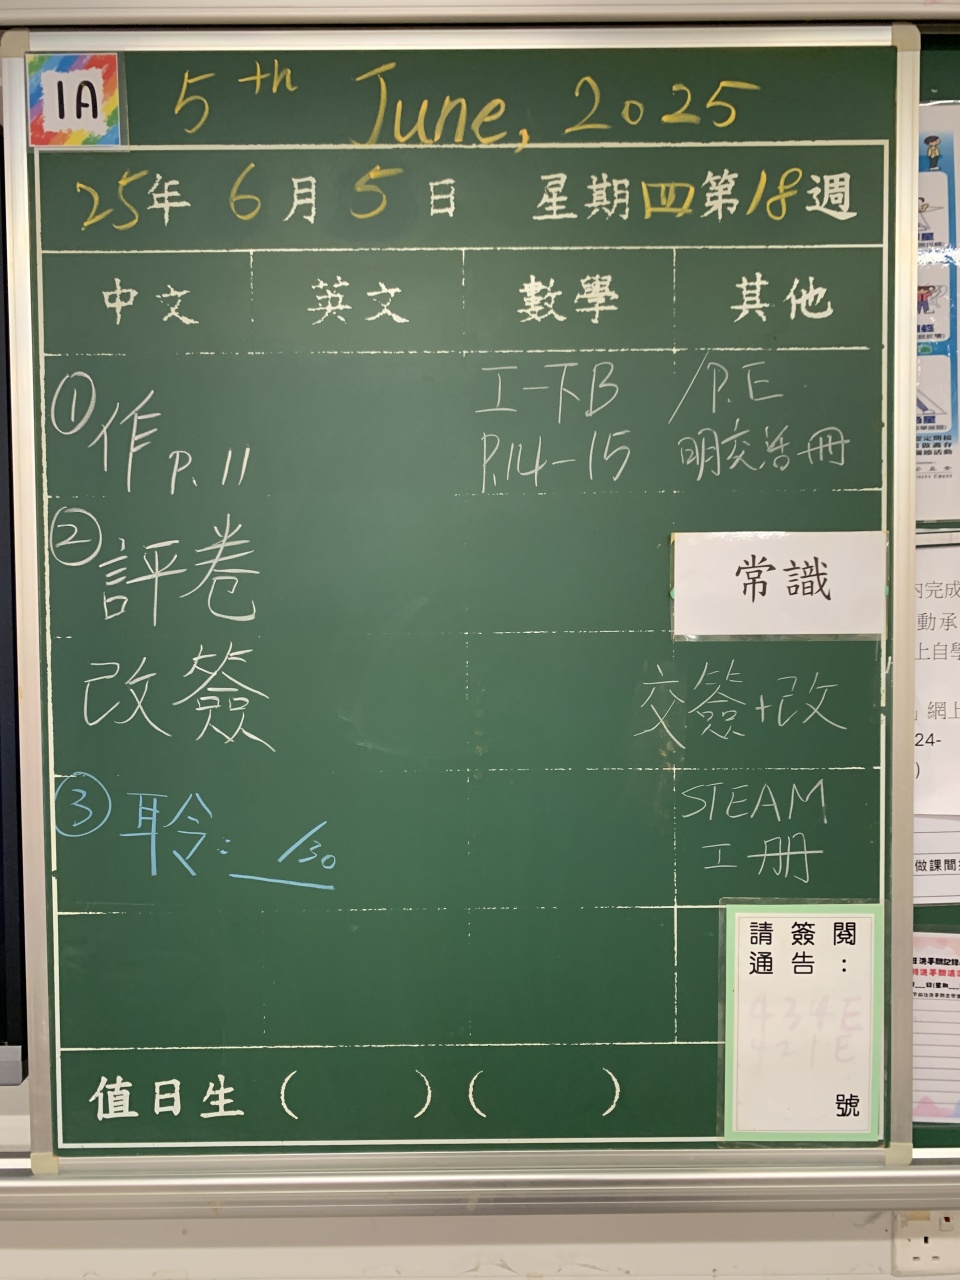 1A
5th June, 2025
25年 6月 5日 星期四第18週
中文 英文 數學 其他
① 作 P.11
工一下B
P.14-15
P.E
明交告冊
② 評卷
改簽
常識
交簽+改
③ 聆: /30
STEAM
工冊
請簽閱
通告:
號
值日生( )( )
內完成
動承
上自學
網上
24-
)
做課間